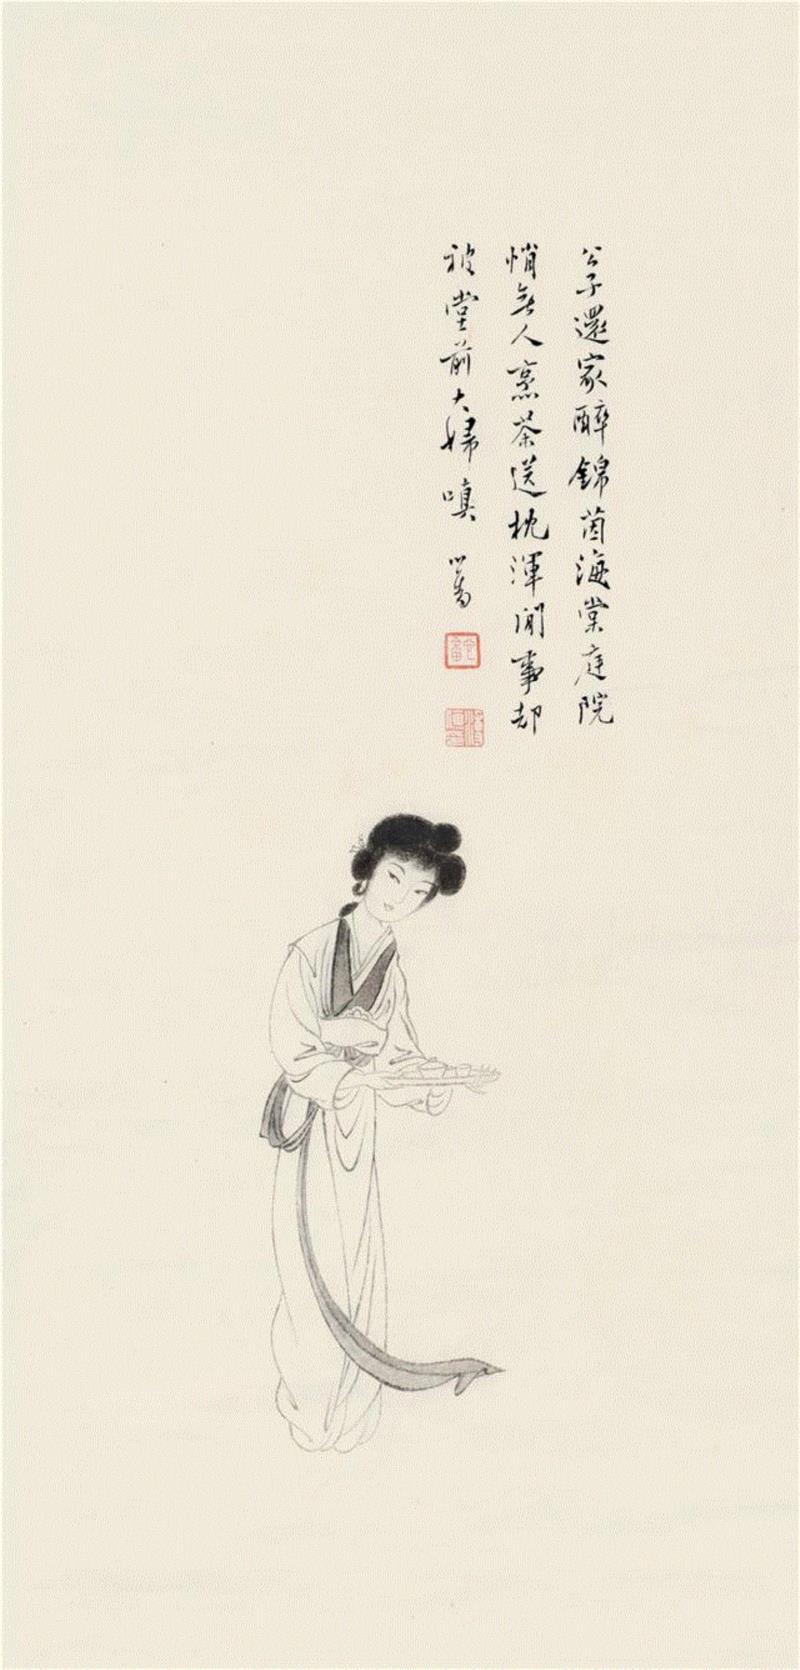 公子還家醉錦茵海棠庭院
悄無人烹茶送枕渾閒事却
被堂前大婦嗔 心畬